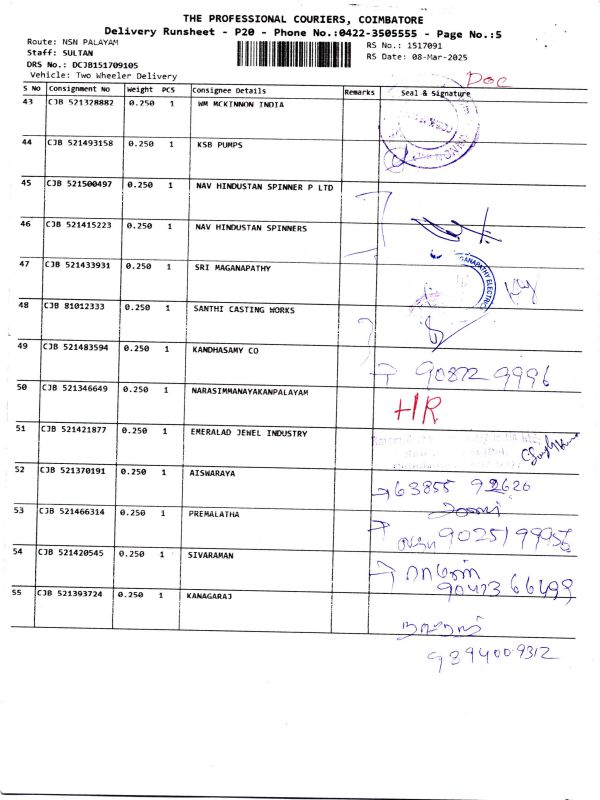 THE PROFESSIONAL COURIERS, COIMBATORE
Delivery Runsheet - P20 - Phone No.:0422-3505555 - Page No.:5
Route: NSN PALAYAM
Staff: SULTAN
DRS No.: DCJB151709105
Vehicle: Two Wheeler Delivery
RS No.: 1517091
RS Date: 08-Mar-2025
DOC
S No Consignment No Weight PCS Consignee Details Remarks Seal & Signature
43 CJB 521328882 0.250 1 WM MCKINNON INDIA
44 CJB 521493158 0.250 1 KSB PUMPS
45 CJB 521500497 0.250 1 NAV HINDUSTAN SPINNER P LTD
46 CJB 521415223 0.250 1 NAV HINDUSTAN SPINNERS
47 CJB 521433931 0.250 1 SRI MAGANAPATHY
48 CJB 81012333 0.250 1 SANTHI CASTING WORKS
49 CJB 521483594 0.250 1 KANDHASAMY CO
90872 9996
50 CJB 521346649 0.250 1 NARASIMMANAYAKANPALAYAM
HR
51 CJB 521421877 0.250 1 EMERALAD JEWEL INDUSTRY
52 CJB 521370191 0.250 1 AISWARAYA
63855 92620
53 CJB 521466314 0.250 1 PREMALATHA
54 CJB 521420545 0.250 1 SIVARAMAN
90423 66499
55 CJB 521393724 0.250 1 KANAGARAJ
9894009312